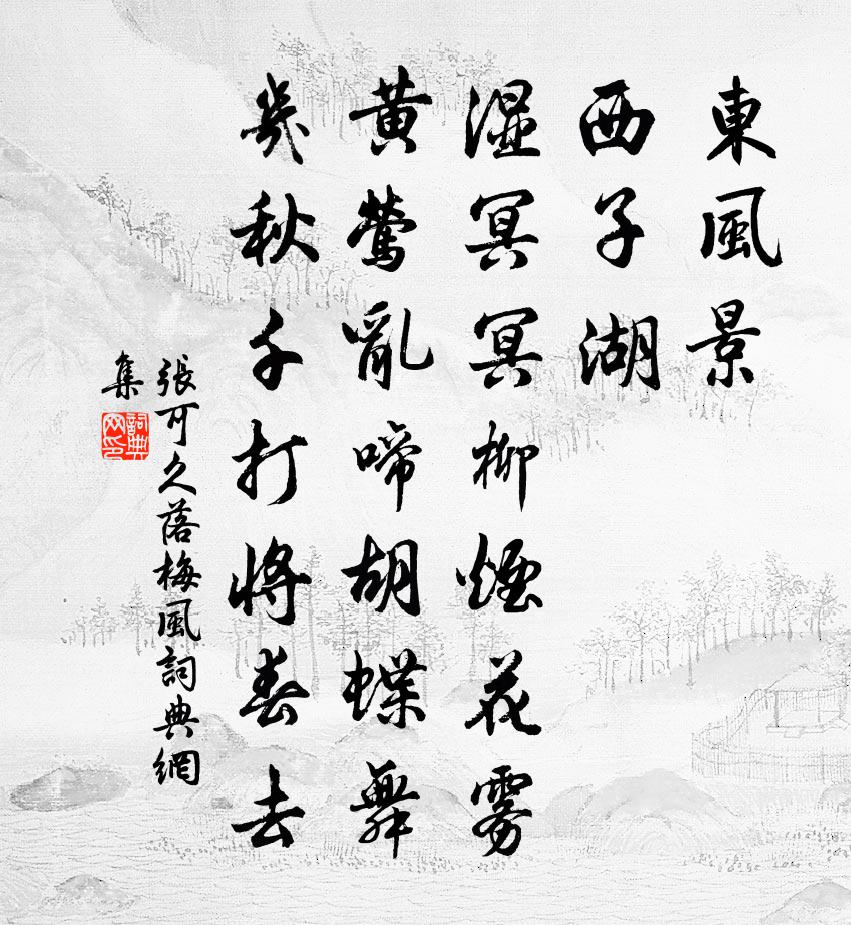 東風景
西子湖
湿冥冥柳煙花雾
黄莺亂啼胡蝶舞
幾秋千打將春去
張可久落梅風詞典網
集
詞典
网印